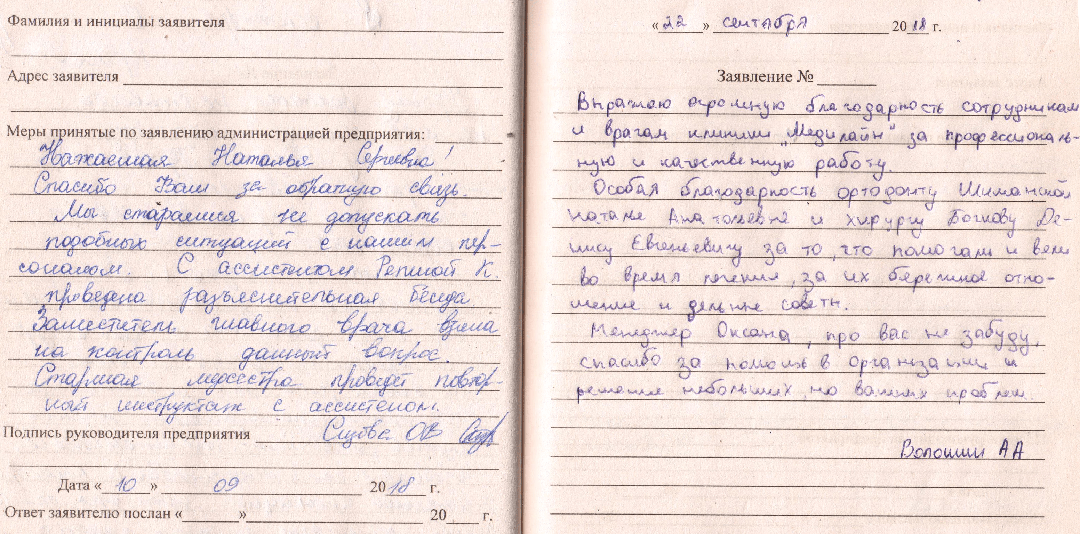 Фамилия и инициалы заявителя
Адрес заявителя
Меры принятые по заявлению администрацией предприятия:
Уважаемая Наталья Сергеевна!
Спасибо Вам за обратную связь.
Мы стараемся не допускать
подобных ситуаций с нашим пер-
соналом. С ассистентом Репиной К.
проведена разъяснительная беседа
Заместитель главного врача взяла
на контроль данный вопрос.
Старшая медсестра проведёт повтор-
ный инструктаж с ассистеном.
Подпись руководителя предприятия
Дата «10» 09 2018 г.
Ответ заявителю послан « » 20 г.
«22» сентября 2018 г.
Заявление №
Выражаю огромную благодарность сотрудникам
и врачам клиники "Медилайн" за профессиональ-
ную и качественную работу.
Особая благодарность ортодонту Шиманской
Наталье Анатольевне и хирургу Бочкову Де-
нису Евгеньевичу за то, что помогали и вели
во время лечения, за их бережное отно-
шение и дельные советы.
Менеджер Оксана, про вас не забуду,
спасибо за помощь в организации и
решение небольших, но важных проблем.
Волошин АА